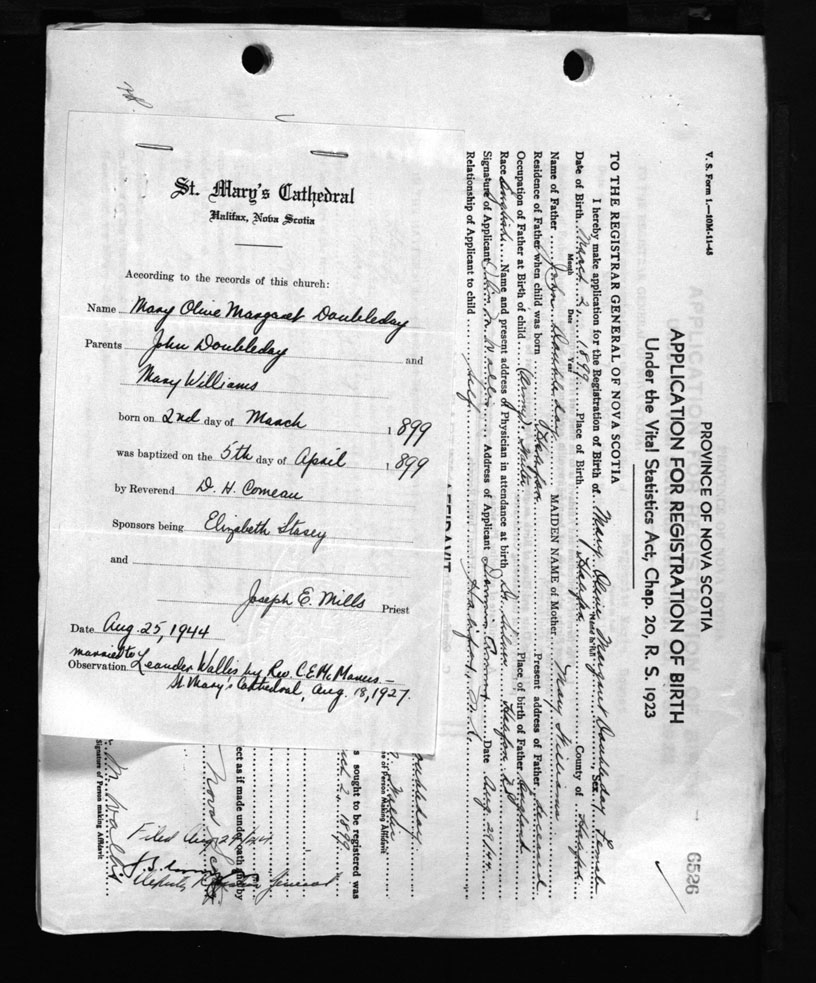 St. Mary's Cathedral
Halifax, Nova Scotia
According to the records of this church:
Name Mary Olive Margaret Doubleday
Parents John Doubleday and
Mary Williams
born on 2nd day of March 1899
was baptized on the 5th day of April 1899
by Reverend D. H. Comeau
Sponsors being Elizabeth Stasey
and
Joseph E. Mills Priest
Date Aug. 25, 1944
married to
Observation Leander Wallis by Rev. C.E. McManus –
St. Mary's Cathedral, Aug. 18, 1927.
V. S. Form 1.—10M-11-43
PROVINCE OF NOVA SCOTIA
APPLICATION FOR REGISTRATION OF BIRTH
Under the Vital Statistics Act, Chap. 20, R. S. 1923
6526
TO THE REGISTRAR GENERAL OF NOVA SCOTIA
I hereby make application for the Registration of Birth of Mary Olive Margaret Doubleday Sex Female
Name in full
Date of Birth March 2, 1899 Place of Birth Halifax County of Halifax
Month Date Year
Name of Father John Doubleday MAIDEN NAME of Mother Mary Williams
Residence of Father when child was born Halifax Present address of Father deceased
Occupation of Father at Birth of child Army Place of birth of Father England
Race English Name and present address of Physician in attendance at birth Dr. Halifax N.S.
Signature of Applicant Olive M. Wallis Address of Applicant Date Aug. 29/44
Relationship of Applicant to child Self Halifax, N.S.
AFFIDAVIT
oubleday
of Person Making Affidavit
s sought to be registered was
arch 2, 1899
ect as if made under oath and by
Nova
M. Wallis
Signature of Person making Affidavit
Filed Aug 29/44
Deputy Registrar General